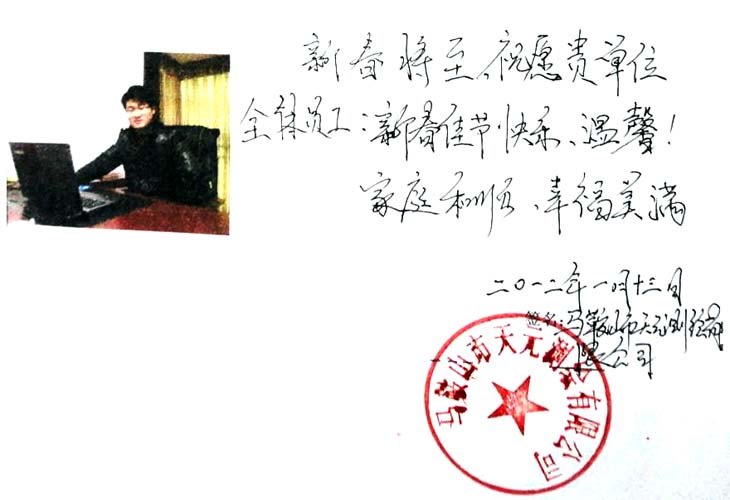 新春将至、祝愿贵单位
全体员工：新春佳节快乐、温馨！
家庭和顺、幸福美满
二〇一二年一月十三日
签名：马鞍山市天元
限公司
马鞍山市天元 有限公司